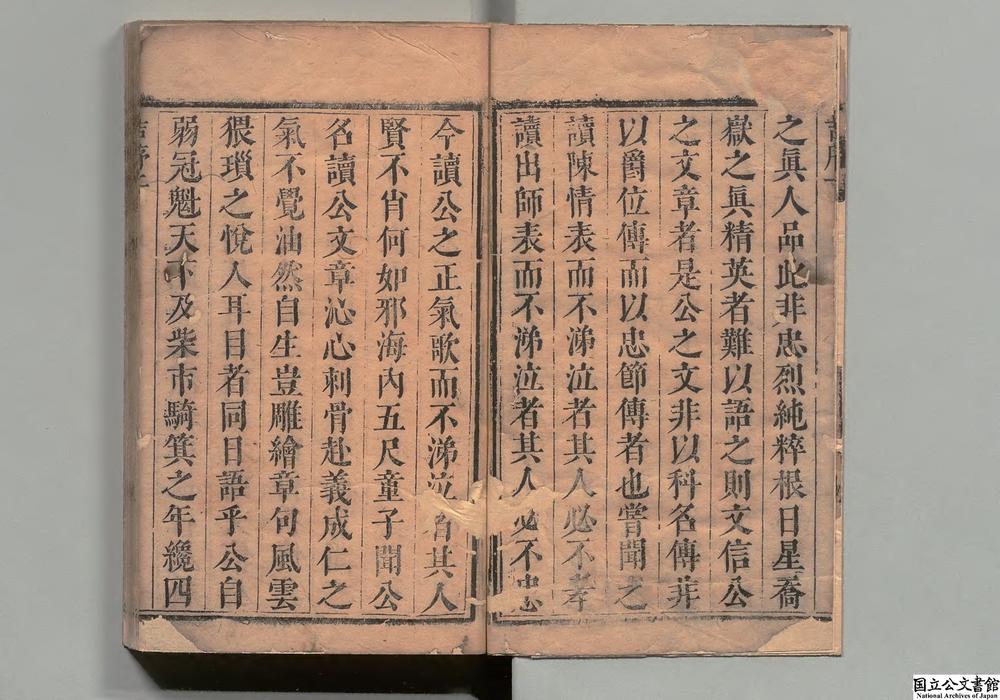 之眞人品此非忠烈純粹根日星喬
嶽之眞精英者難以語之則文信公
之文章者是公之文非以科名傳非
以爵位傳而以忠節傳者也嘗聞之
讀陳情表而不涕泣者其人必不孝
讀出師表而不涕泣者其人必不忠
今讀公之正氣歌而不涕泣者其人
賢不肖何如邪海內五尺童子聞公
名讀公文章沁心刺骨赴義成仁之
氣不覺油然自生豈雕繪章句風雲
猥瑣之悅人耳目者同日語乎公自
弱冠魁天下及柴市騎箕之年纔四
国立公文書館
National Archives of Japan